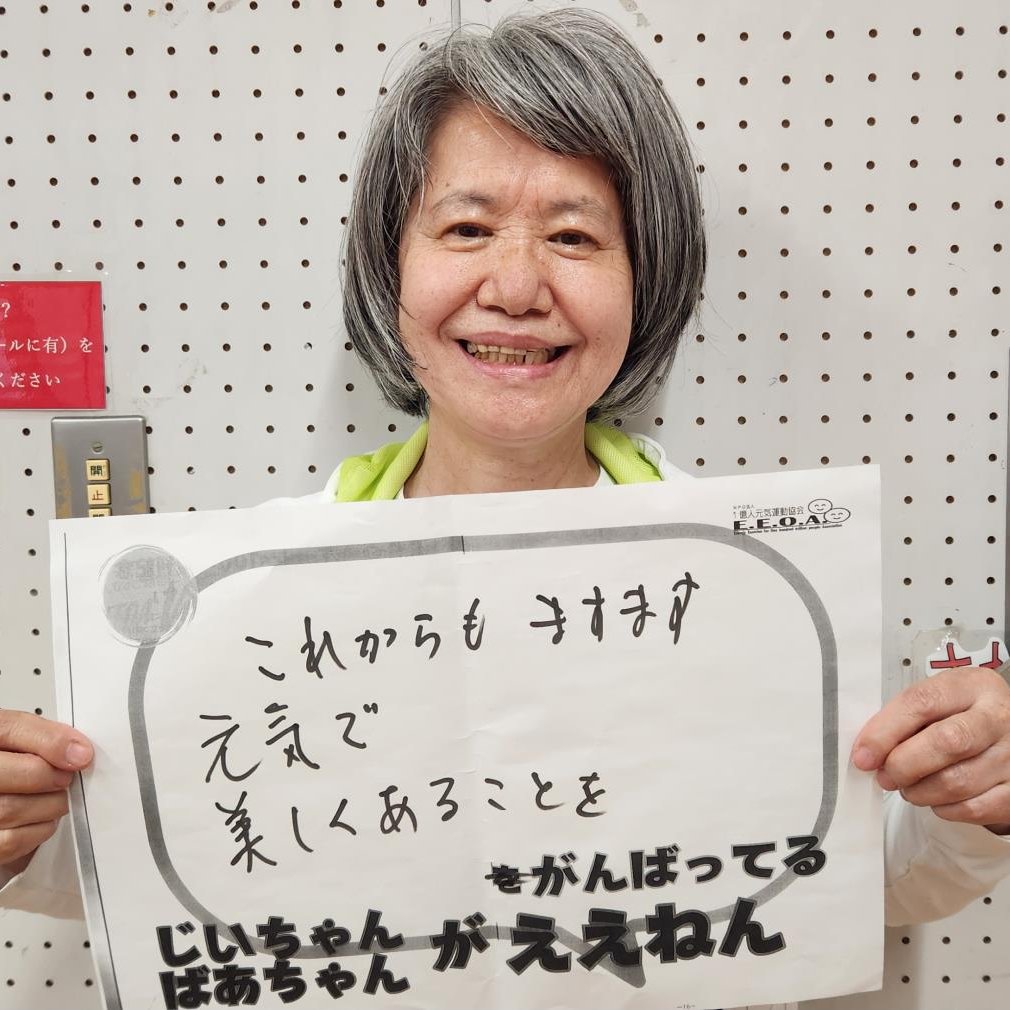 ?
ールに有)を
ください
開
止
1億人元気運動協会
E.E.O.A.
これからも ますます
元気で
美しくあることを
をがんばってる
じいちゃん
ばあちゃん
が ええねん